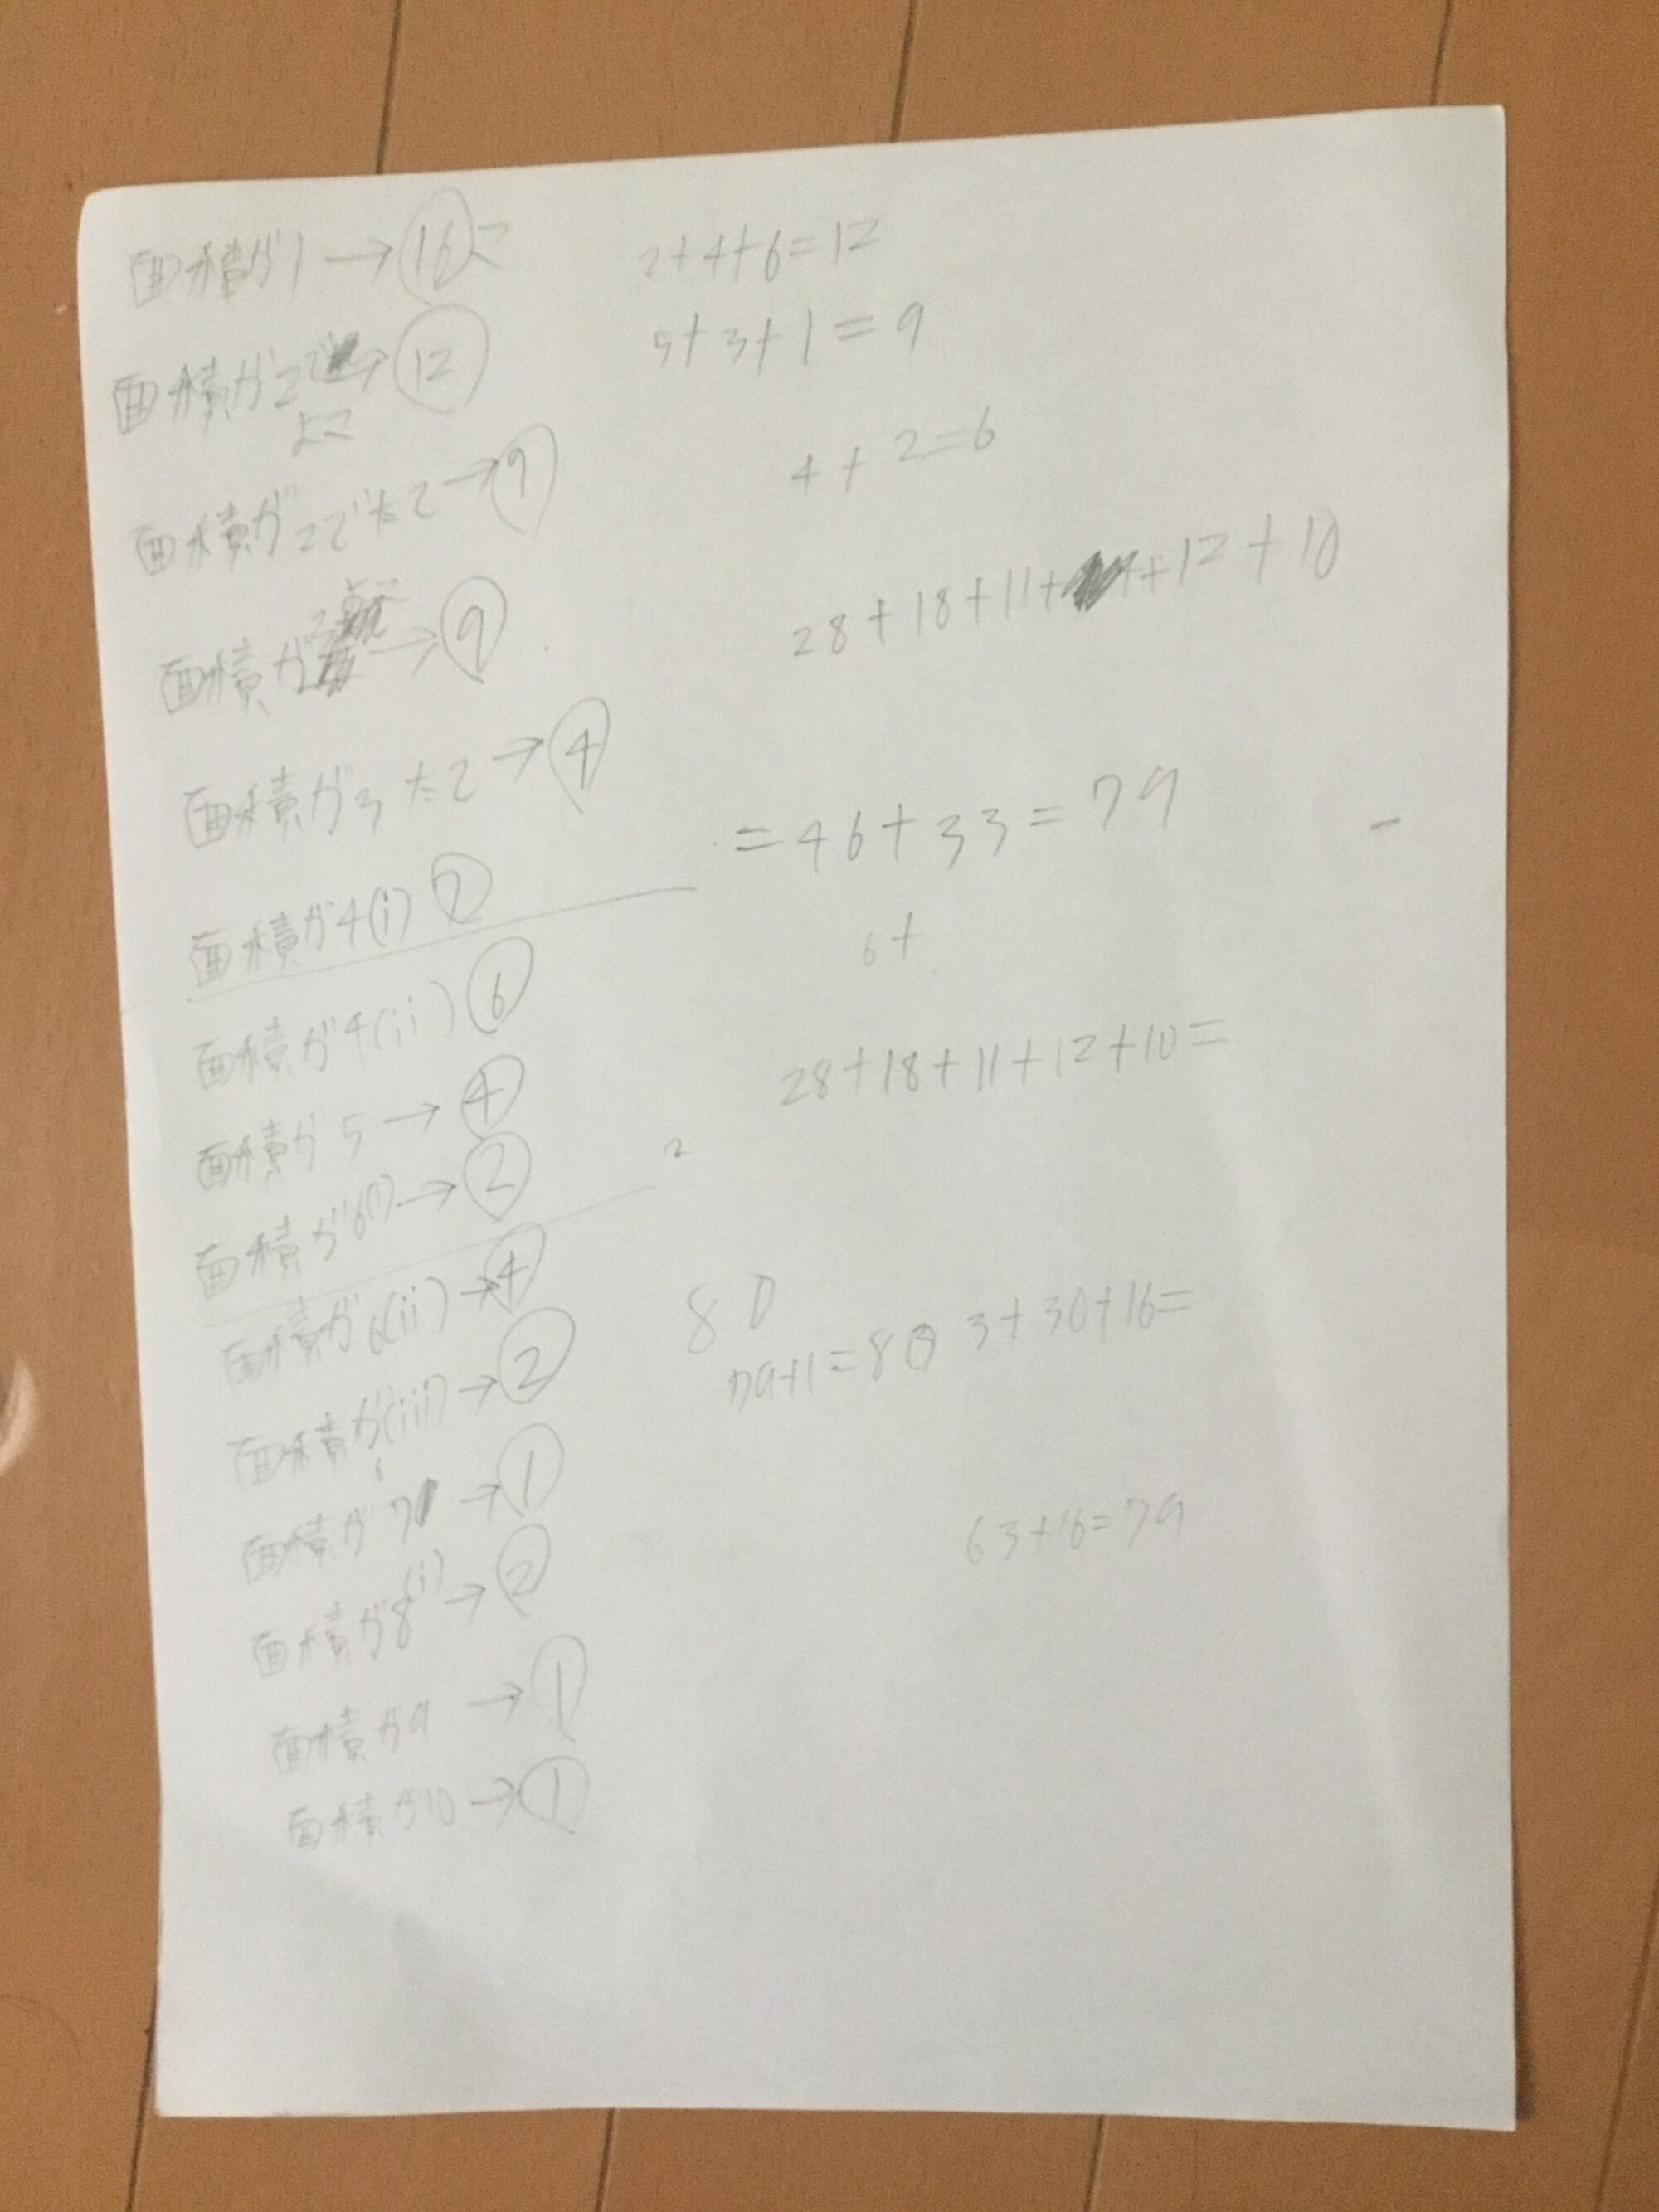 面積が1→16こ
面積が2で→12
よこ
面積が2でたて→9
面積が3→9
面積が3たて→4
面積が4(i)7
面積が4(ii)6
面積が5→4
面積が6(i)→2
面積が6(ii)→4
面積が6(iii)→2
面積が7→1
面積が8(i)→2
面積が9→1
面積が10→1
2+4+6=12
5+3+1=9
4+2=6
28+18+11++12+10
=46+33=79
6+
28+18+11+12+10=
2
80
79+1=80
3+30+16=
63+16=79